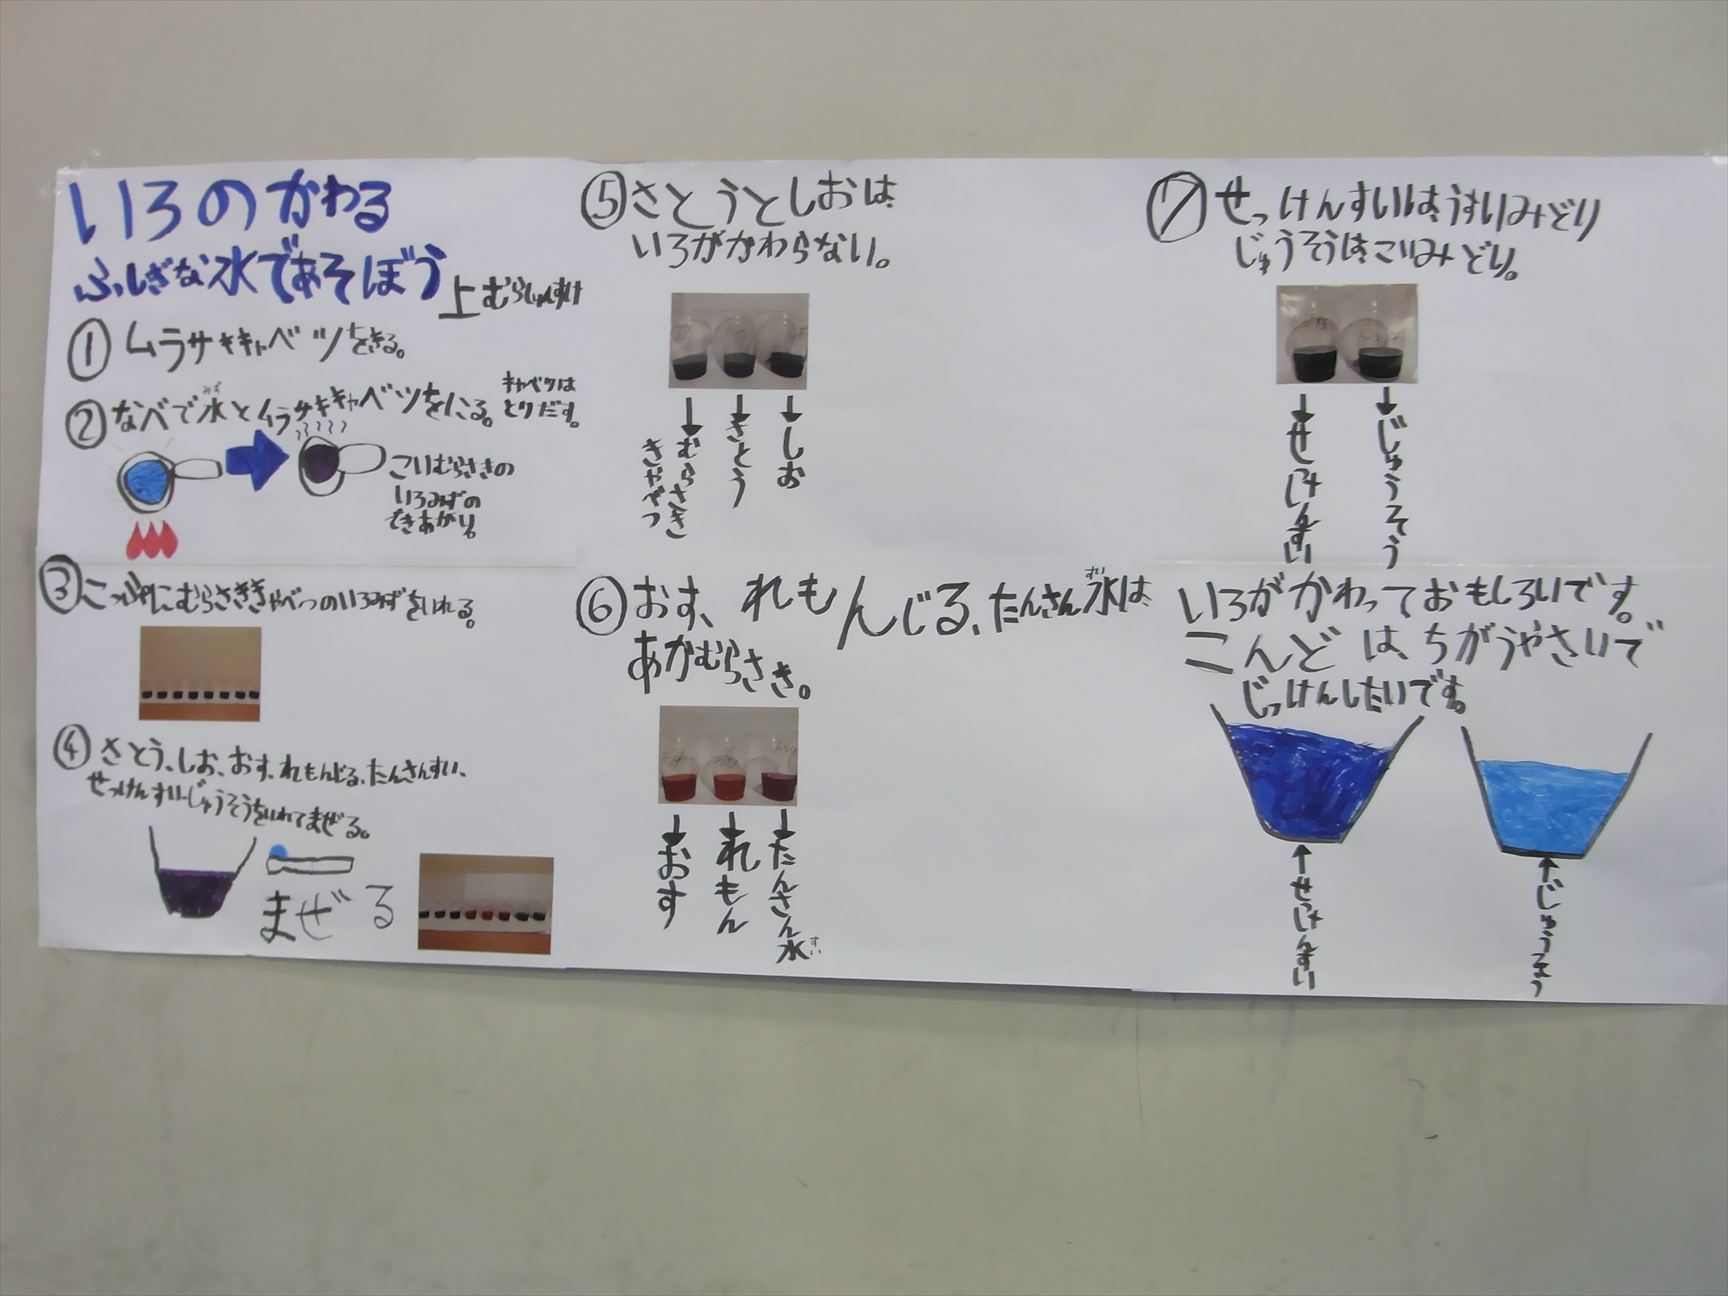 いろのかわる
ふしぎな水であそぼう
上むらしゅんすけ
① ムラサキキャベツをきる。
② なべで水とムラサキキャベツをにる。
みず
キャベツは
とりだす。
こいむらさきの
いろみずの
できあがり。
③ こっぷにむらさききゃべつのいろみずをいれる。
④ さとう、しお、おす、れもんじる、たんさんすい、
せっけんすい、じゅうそうをいれてまぜる。
まぜる
⑤ さとうとしおは
いろがかわらない。
むらさき
きゃべつ
さとう
しお
⑥ おす、れもんじる、たんさん水は
すい
あかむらさき。
おす
れもん
たんさん水
すい
⑦ せっけんすいは、うすいみどり
じゅうそうは、こいみどり。
せっけんすい
じゅうそう
いろがかわっておもしろいです。
こんどは、ちがうやさいで
じっけんしたいです。
せっけんすい
じゅうそう